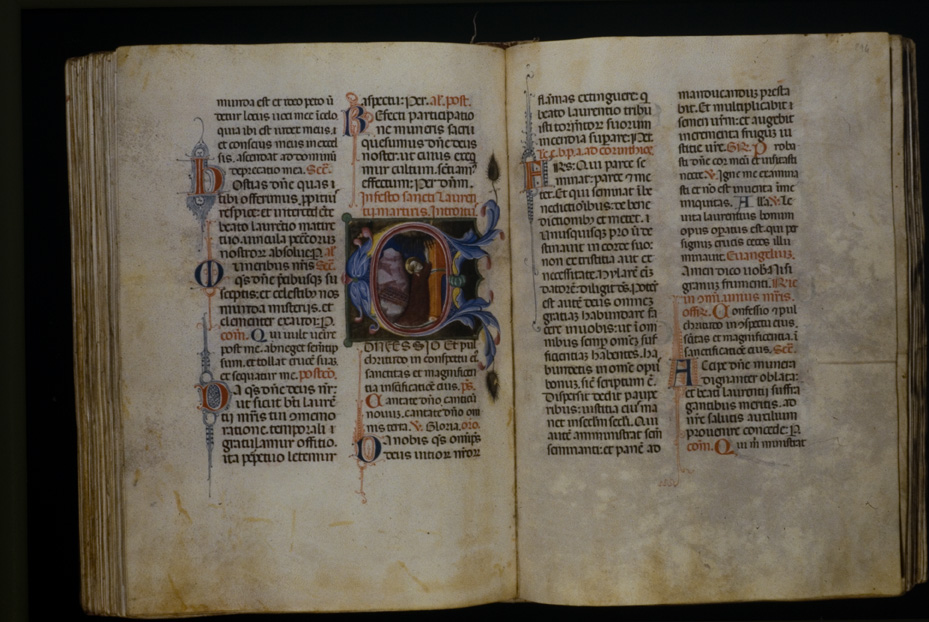 munda est et ideo peto ut
detur locus voci mee ī celo
quia ibi est iudex meus. ⁊
et conscius meus in excel
sis. ascendat ad dominū
deprecatio mea. Sec̄.
Hostias dñe quas t
ibi offerimus ppitiuˀ
respice: et intercedēte
beato laurētio martire
tuo. vincula pectorum
nostrorum absolue. P. al̄
Muneribus nr̄is Sec̄.
qs dñe p̄cibusq; su
sceptis: et celestibˀ nos
munda misteriis. et
clementer exaudi: P.
com̄. Qui vult venire
post me. abneget semētip
sum. et tollat crucē suā.
et sequatur me. postco.
Da qs dñe deus nr̄:
ut sicut bti laurē
tii mr̄is tui ɔmemo
ratione. temporali ⁊
gratulamur offitio.
ita ppetuo letemur
aspectu: Per. al̄. post.
Refecti participatio
ne muneris sacri
quesumus dñe deus
noster. ut cuius exeq
mur cultum. sentiamˀ
effectum: Per dñm.
In festo sancti Lauren
tii martiris. Introitus
Confessio et pul
chritudo in conspectu eiˀ
sanctitas et magnificen
tia in scificatiōe eiˀ. ps̄.
Cantate dño canticū
novum. cantate dño om
nis terra. ℣. Gloria. oro.
Da nobis qs omp̄s
deus vitiorum nr̄orum
flāmas extinguere: q
beato laurentio tribu
isti tormētorum suorum
incendia supare: Per
Lc̄. b. p. a. ad corinthios
Frs: Qui parce se
minat: parce ⁊ me
tet. Et qui seminat ī be
nedictionibus: de bene
dictionibˀ et metet.
Unusquisq; pro ut de
stinavit in corde suo:
non ex tristitia aut ex
necessitate. hylarē eī
datorē diligit ds. Potēs
est autē deus omnem
gratiā habundare fa
cere in vobis: ut ī om
nibus semp omēm suf
ficientiā habentes. ha
bundetis in omē opus
bonum. sic̄ scriptum ē.
Dispersit dedit paupe
ribus: iustitia eius ma
net in sclm scli. Qui
autē amministrat sem̄
seminanti: et panē ad
manducandum presta
bit. Et multiplicabit
semen vr̄m: et augebit
incrementa frugum iu
stitie vr̄e. Gr̄. Proba
sti dñe cor meū et visitasti
nocte. ℣. Igne me examina
sti et nō est inventa ī me
iniquitas. Alla. ℣. Le
vita laurentius bonum
opus opatus est. qui per
signum crucis cecos illu
minavit. Evangelium.
Amen dico vobis. Nisi
granum frumenti. R̄ic
in cōmuni. unius mr̄is.
offr̄. Confessio ⁊ pul
chritudo in ɔspectu eius.
sc̄itas et magnificentia. ī
sanctificatiōe eius. Sec̄.
Accipe dñe munera
dignanter oblata:
et beati laurentii suffra
gantibus meritis. ad
nr̄e salutis auxilium
provenire concede: P.
com̄. Qui m̄ ministrat